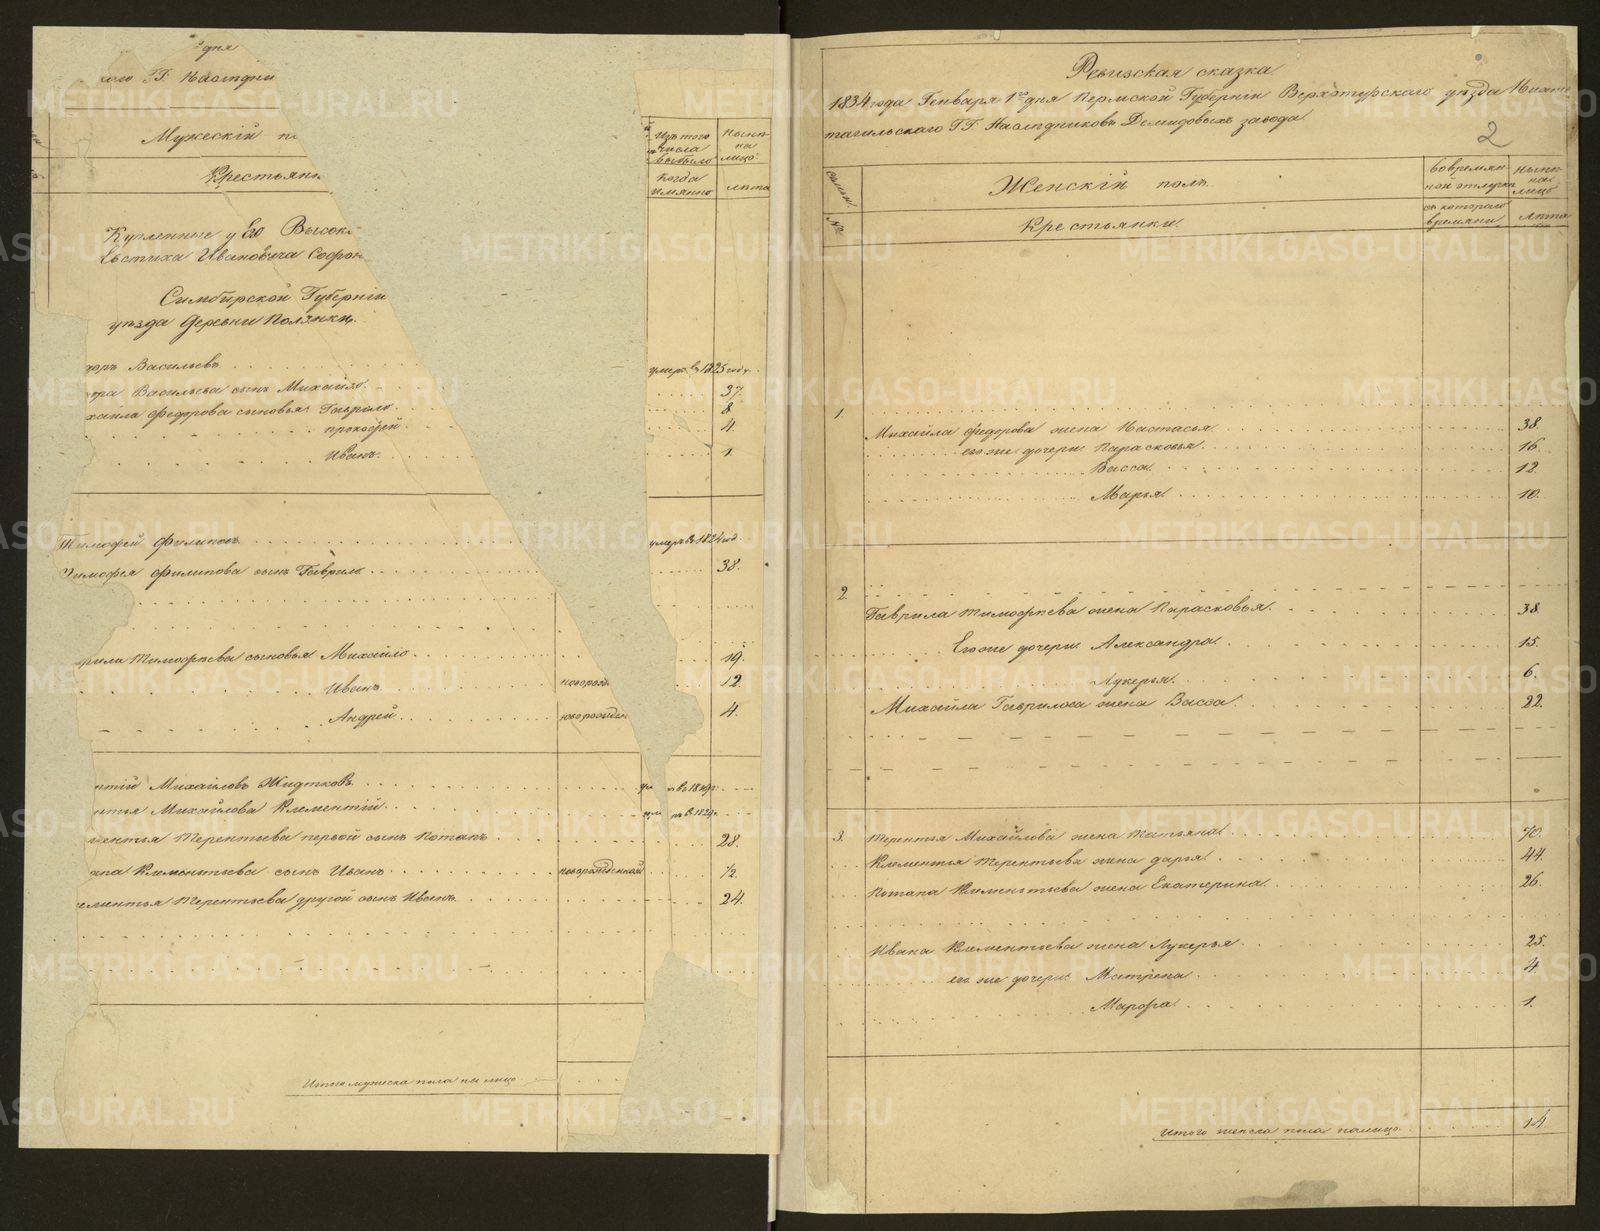 дня
ого ГГ. Наслѣдни
Мужескій по
Крестьян
Изъ того числа выбыло
нынѣ на лицо
Когда имянно
лѣта
Купленные у Его Высок
Евстиха Ивановича Софон
Симбирской Губерніи
уѣзда Деревни Полянки.
Васильевъ
умеръ въ 1825 году
Васильева сынъ Михайло
37.
хайла Федорова сыновья Гаврило
8
прокофей
4.
Иванъ
1
Тимофей Филиповъ
умеръ въ 1824 год
Тимофея Филипова сынъ Гаврило
38.
рила Тимофѣева сыновья Михайло
19.
Иванъ
новорожд
12
Андрей
новорожден
4.
нтій Михайловъ Жидтковъ
нтья Михайлова Клементій
ментья Терентьева первой сынъ Потапъ
28.
апа Клементьева сынъ Иванъ
новорожденной
1/2
лементья Терентьева другой сынъ Иванъ
24.
Итого мужеска пола на лицо
Ревизская сказка
1834 года Генваря 1го дня Пермской Губерніи Верхотурскаго уѣзда Нижне
тагильскаго ГГ. Наслѣдниковъ Демидовыхъ завода
2
семьи №
Женскій полъ
во времян ной отлучкѣ
нынѣ на лицо
Крестьянки
съ котораго времяни
лѣта
1
Михайла Федорова жена Настасья
38.
его же дочери Парасковья
16.
Васса
12
Марья
10.
2.
Гаврила Тимофѣева жена Парасковья
38
Его же дочери Александра
15.
Лукерья
6.
Михайла Гаврилова жена Васса
22.
3.
Терентья Михайлова жена Татьяна
70.
Клементья Терентьева жена дарья
44.
Потапа Клементьева жена Екатерина
26.
Ивана Клементьева жена Лукерья
25.
его же дочери Матрена
4.
Марфа
1.
Итого женска пола налицо
14
METRIKI.GASO-URAL.RU